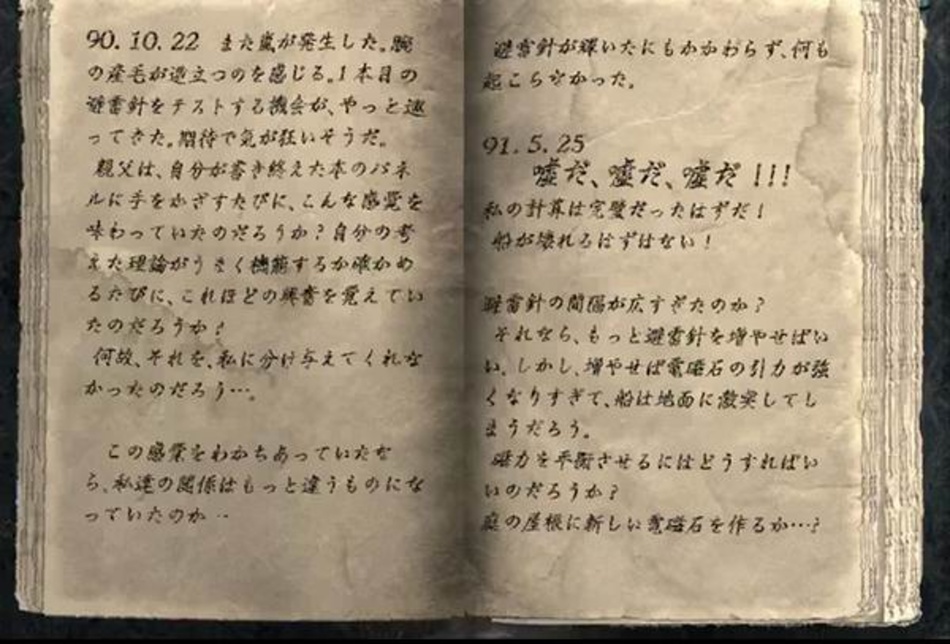 90.10.22 また嵐が発生した。腕
の産毛が逆立つのを感じる。1本目の
避雷針をテストする機会が、やっと巡
ってきた。期待で気が狂いそうだ。
親父は、自分が書き終えた本のパネ
ルに手をかざすたびに、こんな感覚を
味わっていたのだろうか?自分の考
えた理論がうまく機能するか確かめ
るたびに、これほどの興奮を覚えてい
たのだろうか?
何故、それを、私に分け与えてくれな
かったのだろう…。
この感覚をわかちあっていたな
ら、私達の関係はもっと違うものにな
っていたのか…
避雷針が輝いたにもかかわらず、何も
起こらなかった。
91.5.25
嘘だ、嘘だ、嘘だ!!!
私の計算は完璧だったはずだ!
船が壊れるはずはない!
避雷針の間隔が広すぎたのか?
それなら、もっと避雷針を増やせばい
い。しかし、増やせば電磁石の引力が強
くなりすぎて、船は地面に激突してし
まうだろう。
磁力を平衡させるにはどうすればい
いのだろうか?
庭の屋根に新しい電磁石を作るか…?